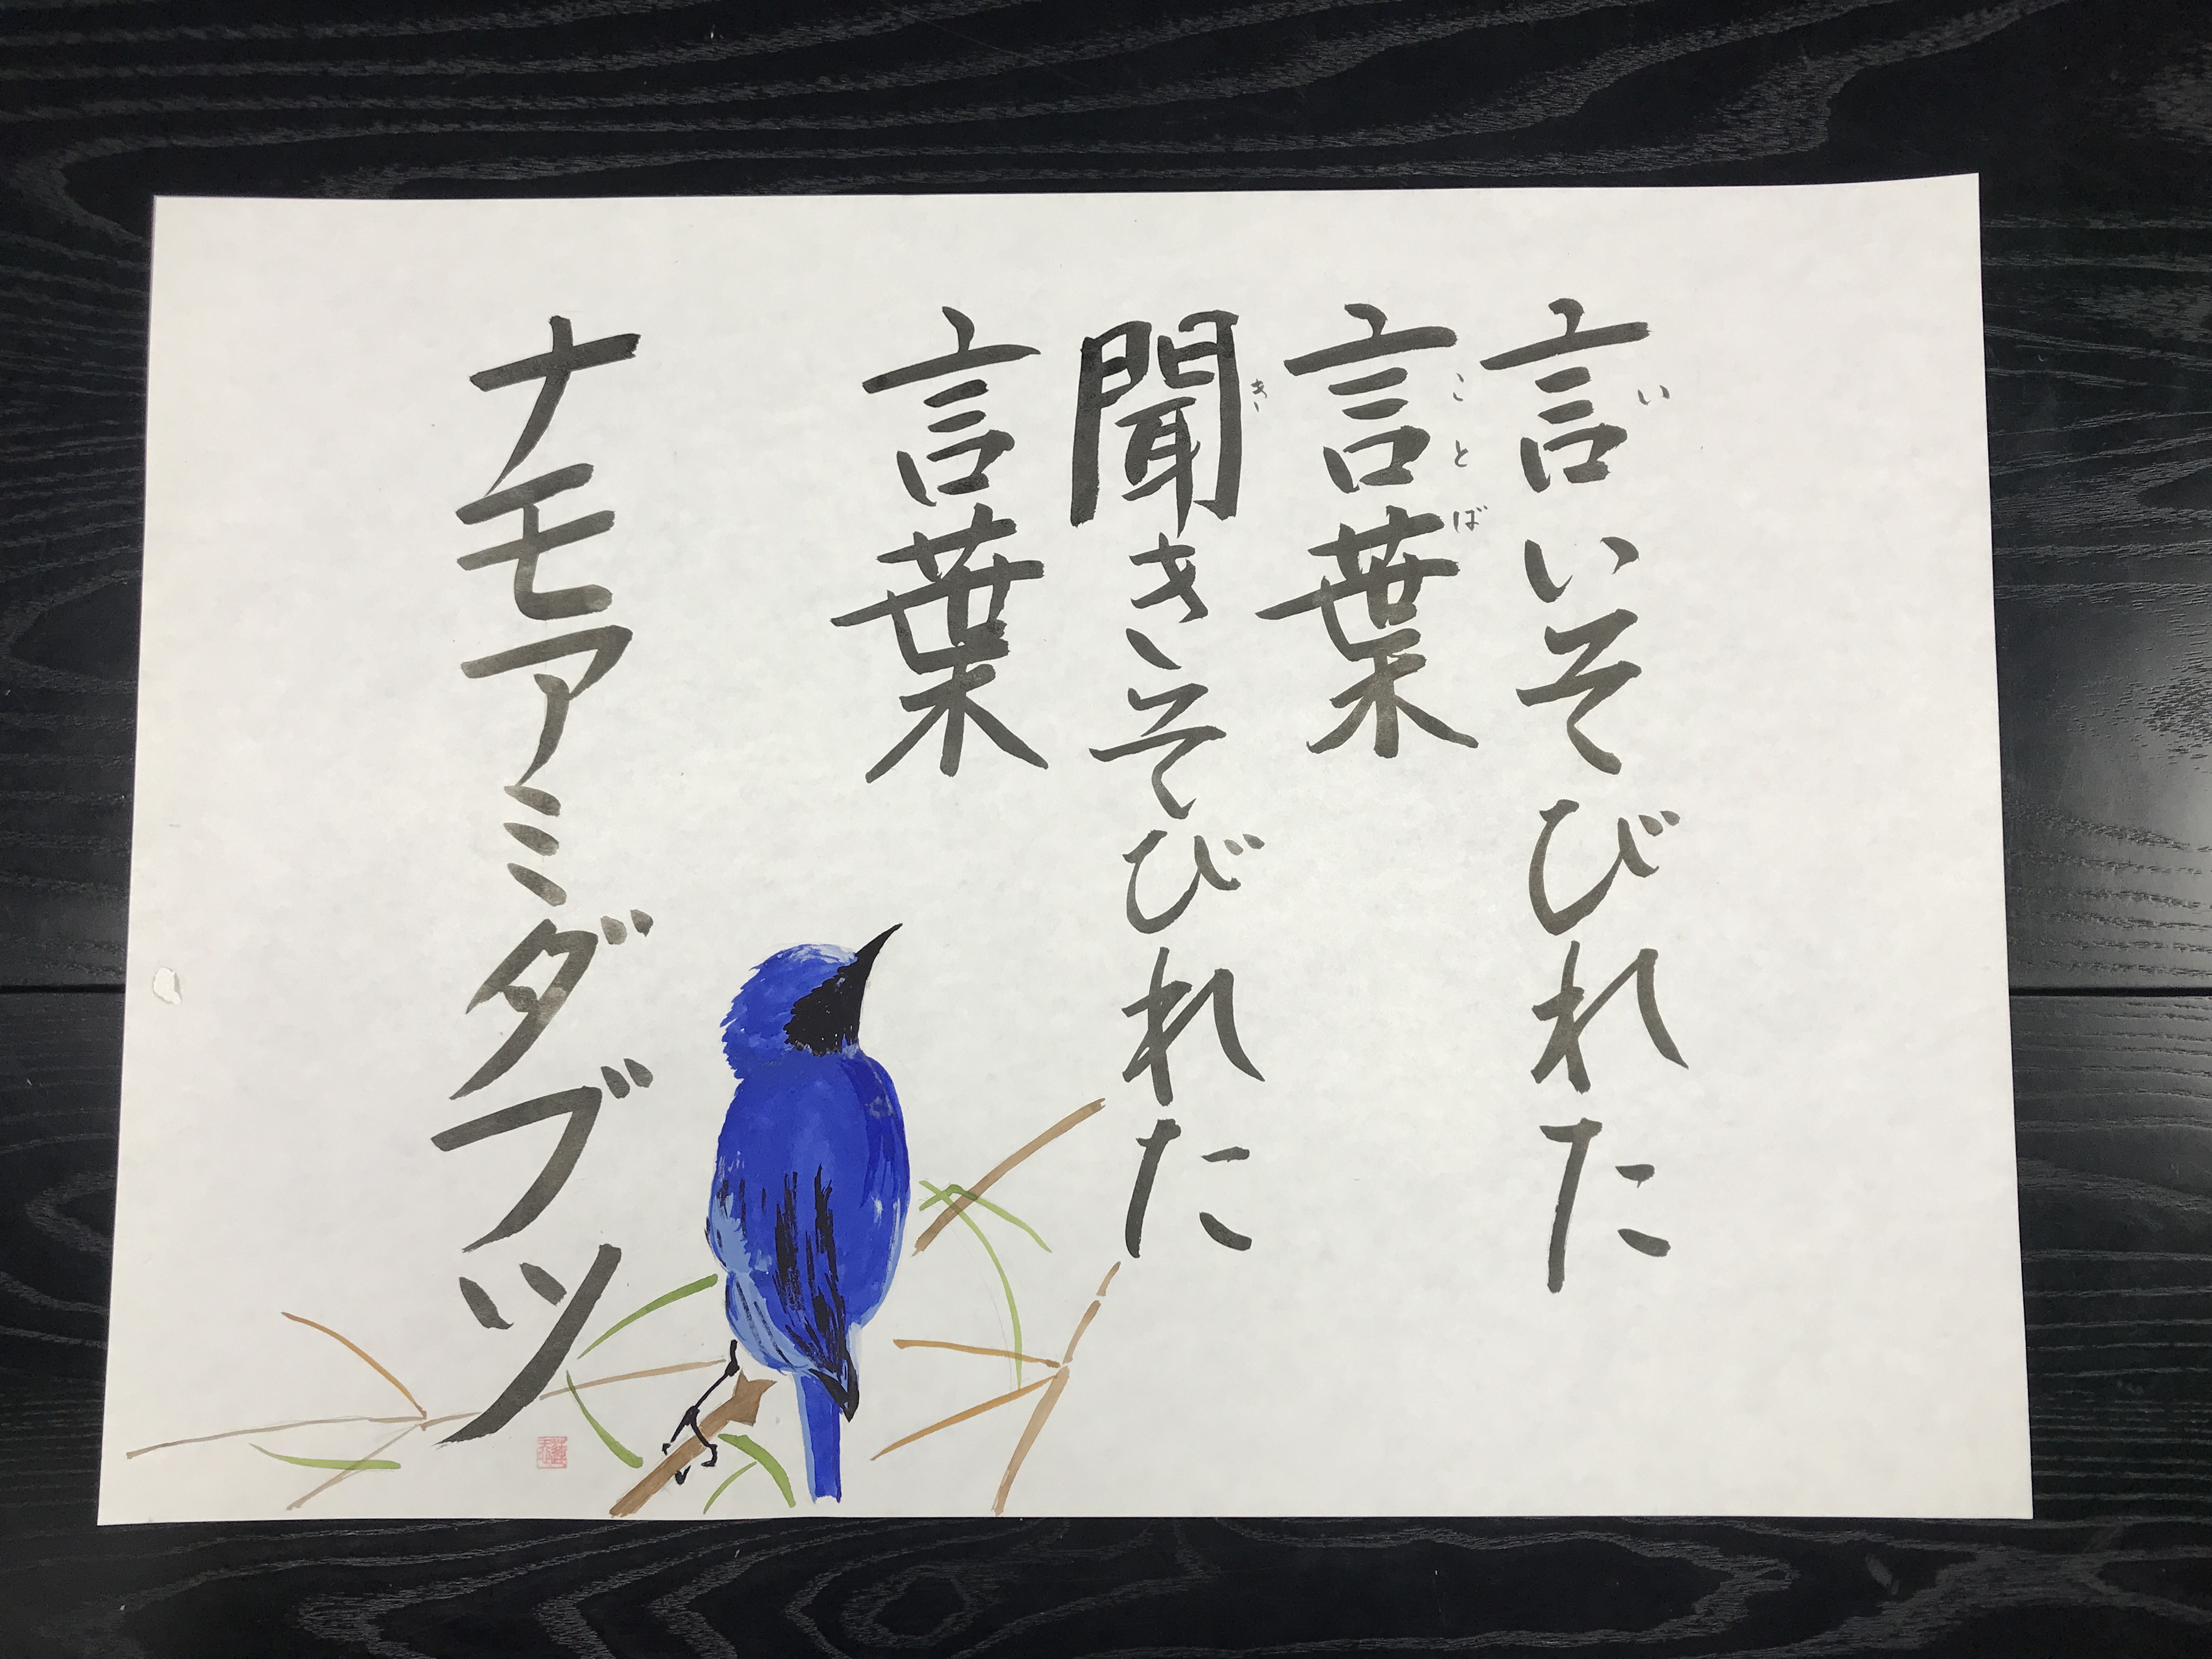 言いそびれた
言葉
聞きそびれた
言葉
ナモアミダブツ